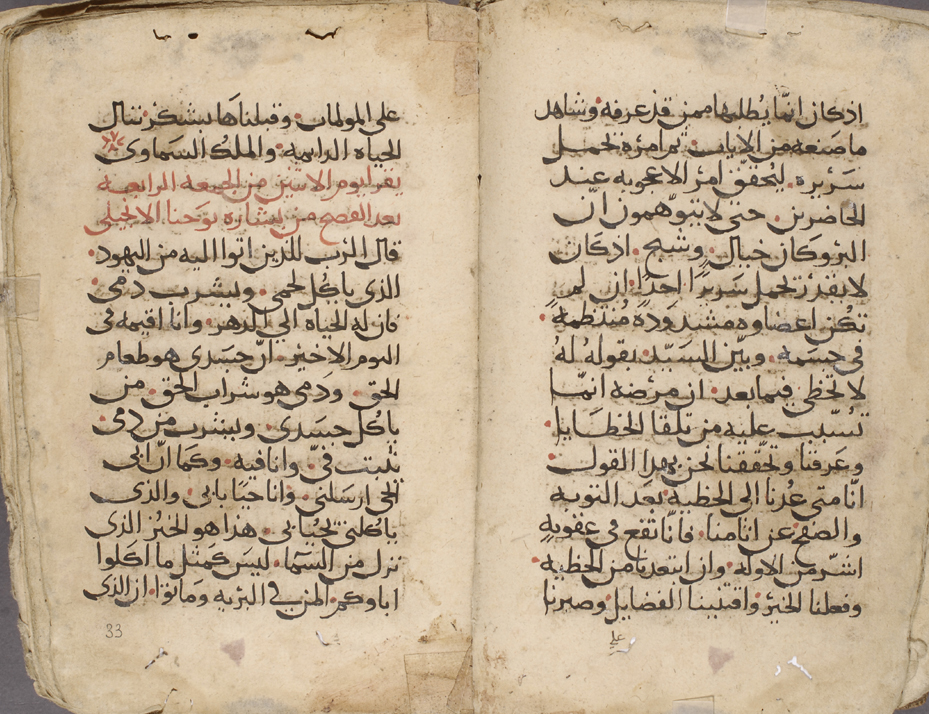 اذ كان انما يطلبها ممن قد عرفه وشاهد
ما صنعه من الايات. ثم امره تحمل
سريره. ليحقق امر الاعجوبه عند
الحاضرين. حتى لا يتوهمون ان
البرو كان خيال. وشبح. اذ كان
لا يقدر تحمل سريرا احدا. ان لم
تكن اعضاوه مشدوده منتظمة.
في جسمه. وبين السيد. بقوله له
لا تخطي فيما بعد. ان مرضه انما
تسبب عليه من تلقا الخطايا.
وعرفنا وتحققنا نحن بهدا القول.
انا متى عدنا الى الخطيه بعد التوبه
والصفح عن اثامنا. فانا نقع في عقوبه
اشر من الاوله. وان ابتعدنا من الخطيه.
وفعلنا الخير. واقتنينا الفضايل. وصبرنا
على
على المولمات. وقبلناها بشكر. ننال
الحياه الدايمه. والملك السماوى
يقرا يوم الاثنين من الجمعه الرابعه
بعد الفصح من بشاره يوحنا الانجيلي
قال الرب للذين اتوا اليه من اليهود.
الذي ياكل لحمي. ويشرب دمي.
فان له الحياه الي الدهر. وانا اقيمه في
اليوم الاخير. ان جسدي هو طعام
الحق. ودمي هو شراب الحق. من
ياكل جسدى. ويشرب من دمي.
يثبت في. وانا فيه. وكما ان ابي
الحي ارسلني. وانا حيا بابي. والذى
ياكلني يحيا بي. هذا هو الخبز الذى
نزل من السما. ليس كمثل ما اكلوا
اباوكم. المن في البريه وماتوا. ان الذى
33